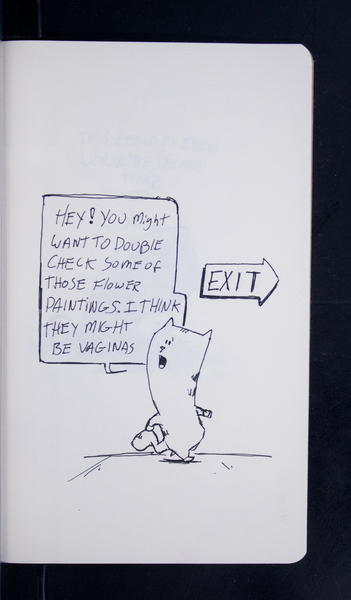 HEY! YOU Might
WANT TO DOUBLE
CHECK SOME OF
THOSE FLOWER
PAINTINGS. I THINK
THEY MIGHT
BE VAGINAS
EXIT